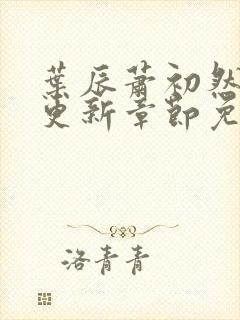 葉辰蕭初然
更新章節免
洛青青